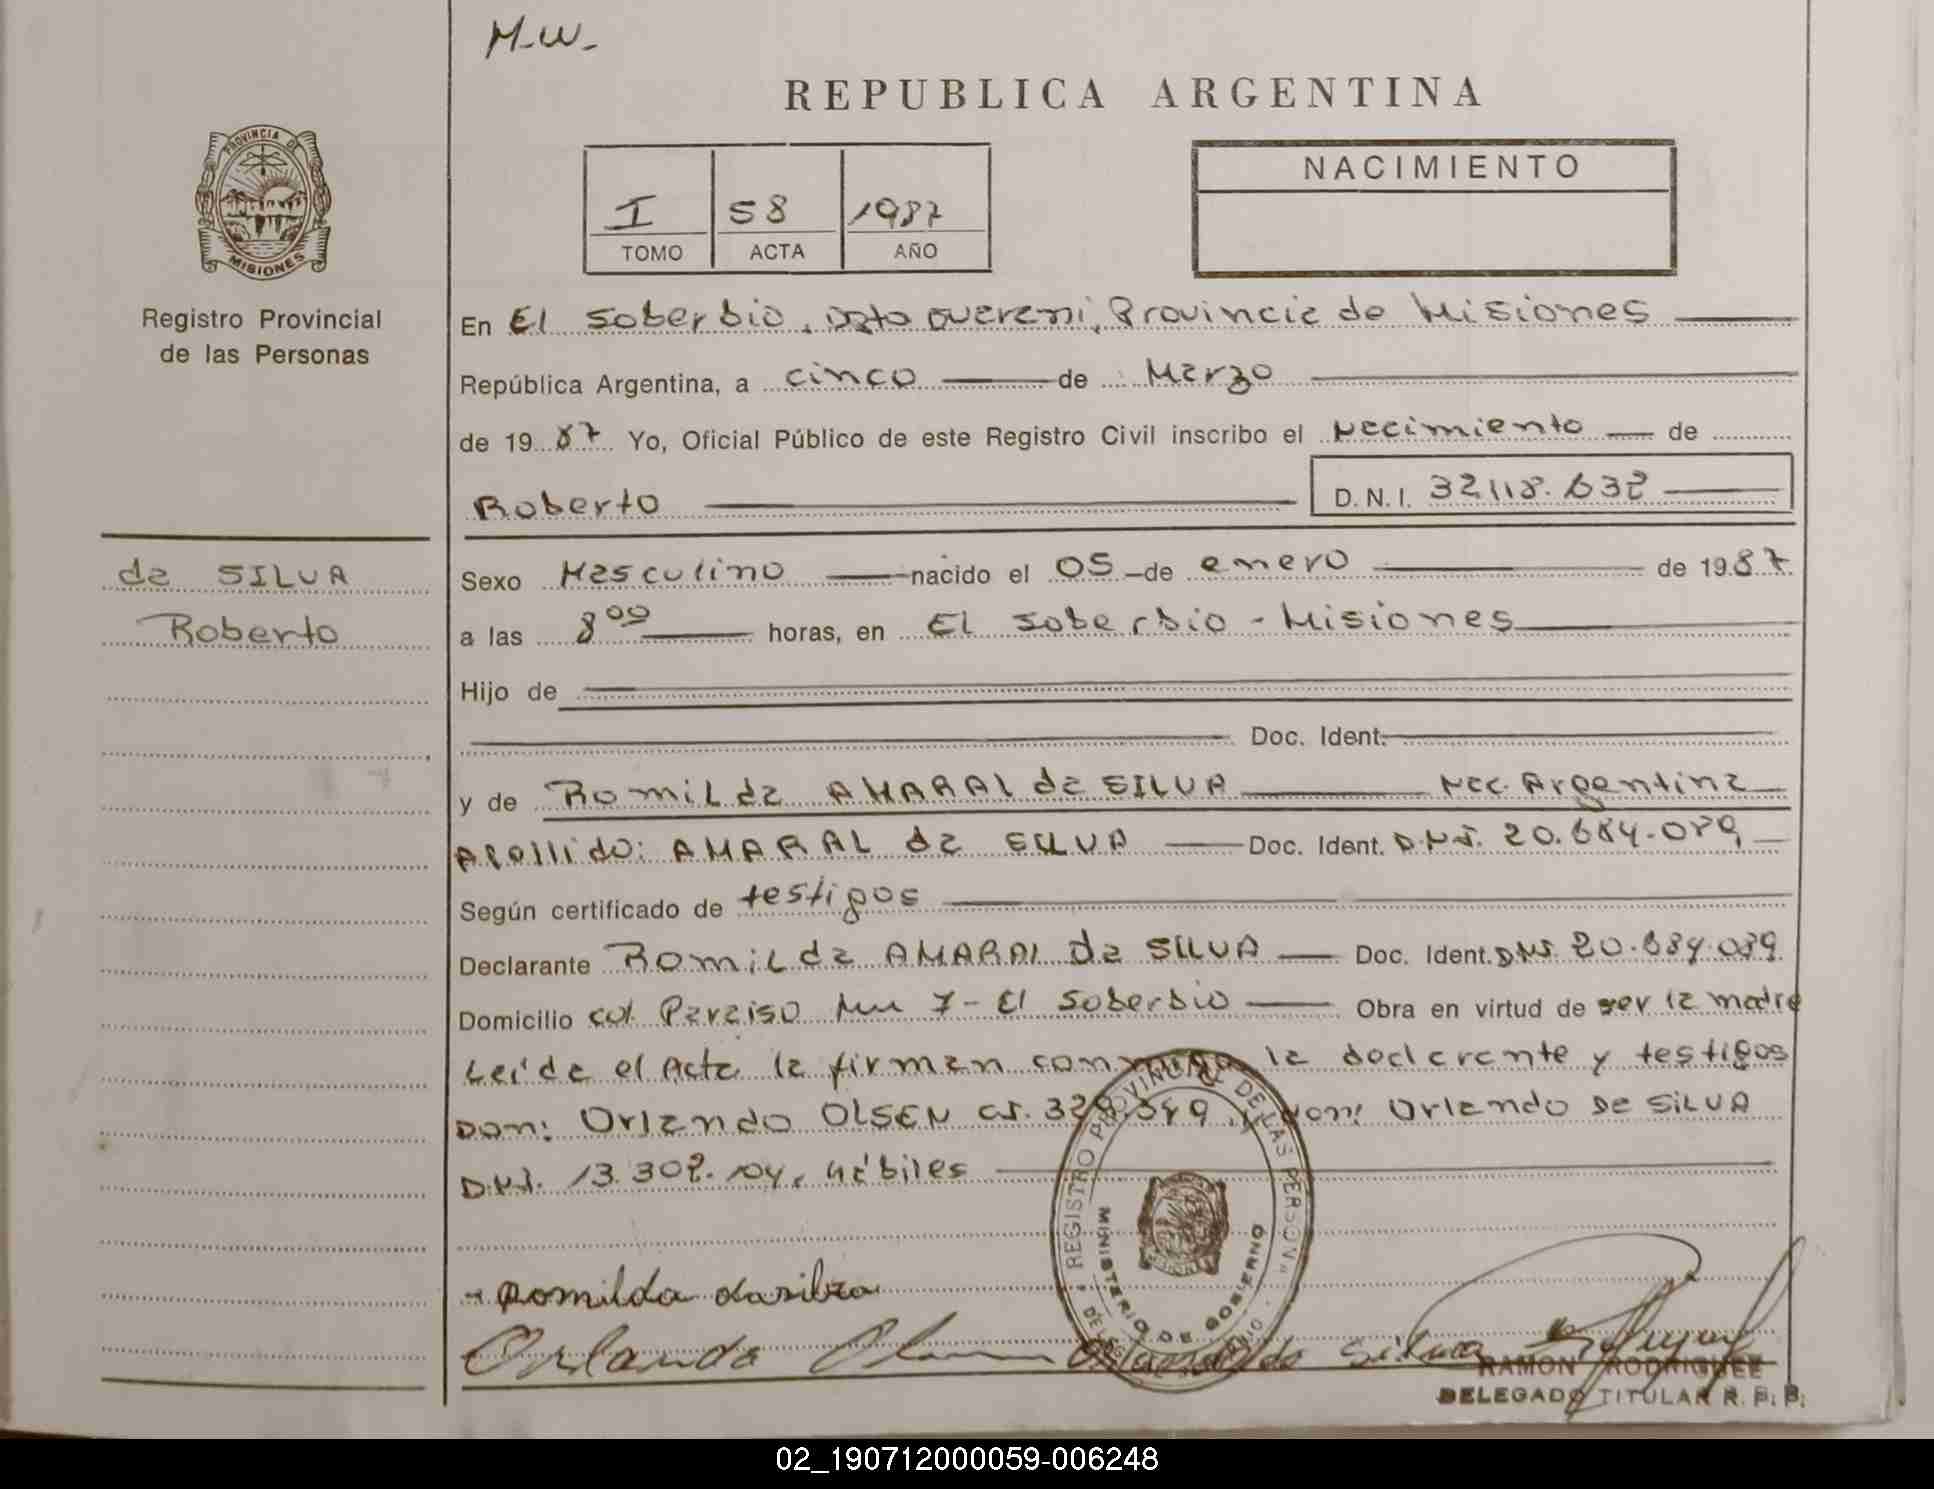 M-W-
REPUBLICA ARGENTINA
PROVINCIA DE
MISIONES
Registro Provincial
de las Personas
I 58 1987
TOMO ACTA AÑO
NACIMIENTO
En El Soberbio, Dpto Guarani, Provincia de Misiones
República Argentina, a cinco de Marzo
de 19 87 Yo, Oficial Público de este Registro Civil inscribo el Nacimiento de
Roberto D.N.I. 32118.632
da SILVA
Roberto
Sexo Masculino nacido el 05 de enero de 1987
a las 8 00 horas, en El Soberbio - Misiones
Hijo de
Doc. Ident.
y de Romilda AMARAL da SILVA Nac. Argentina
Apellido: AMARAL da SILVA Doc. Ident. D.N.I. 20.684.089
Según certificado de testigos
Declarante Romilda AMARAL da SILVA Doc. Ident. DNI. 20.684.089
Domicilio col. Paraiso Km 7 - El Soberbio Obra en virtud de ser la madre
Leída el Acta la firman conmigo la declarante y testigos
Don: Orlando OLSEN CI. 329.349 y don: Orlando De SILVA
D.N.I. 13.302.104, hábiles
REGISTRO PROVINCIAL DE LAS PERSONAS
MINISTERIO DE GOBIERNO
Romilda dasilva
Orlando Olsen Orlando de Silva
RAMON RODRIGUEZ
DELEGADO TITULAR R. P. P.
02_190712000059-006248